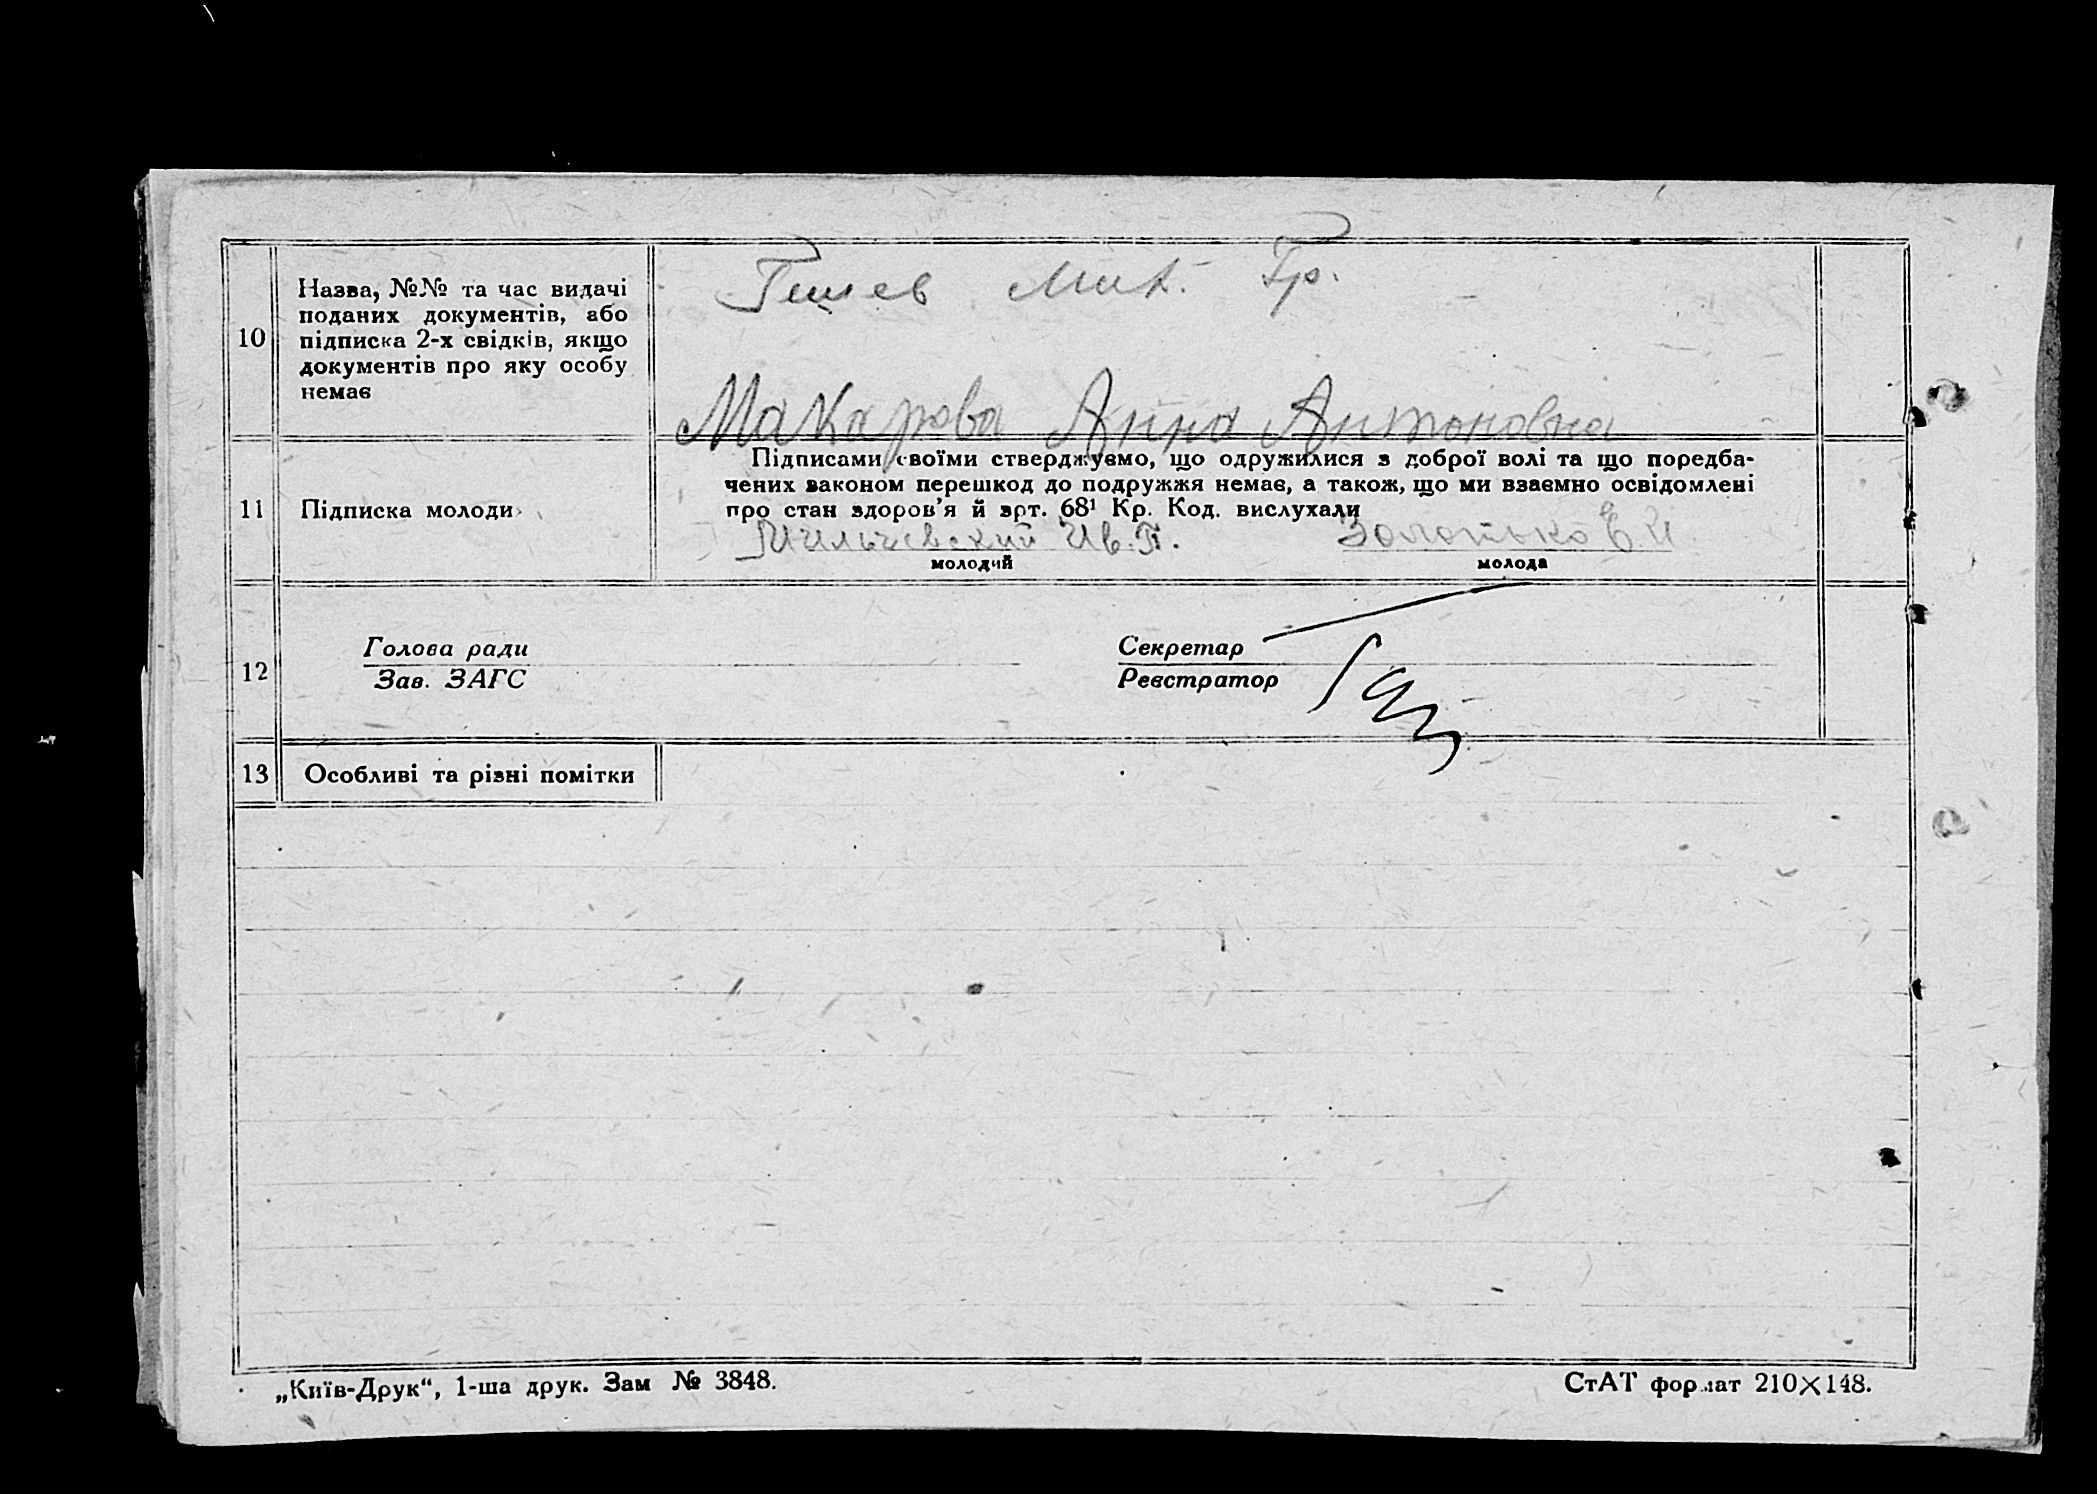 10
Назва, №№ та час видачі
поданих документів, або
підписка 2-х свідків, якщо
документів про яку особу
немає
Мих. Гр.
Макарова Анна Антоновна
11
Підписка молоди
Підписами своїми стверджуємо, що одружилися з доброї волі та що поредба-
чених законом перешкод до подружжя немає, а також, що ми взаємно освідомлені
про стан здоров’я й арт. 68¹ Кр. Код. вислухали
Ив. П. Золотько Е. И
молодий молода
12
Голова ради Секретар
Зав. ЗАГС Реєстратор
13
Особливі та різні помітки
„Київ-Друк“, 1-ша друк. Зам № 3848. СтАТ формат 210×148.